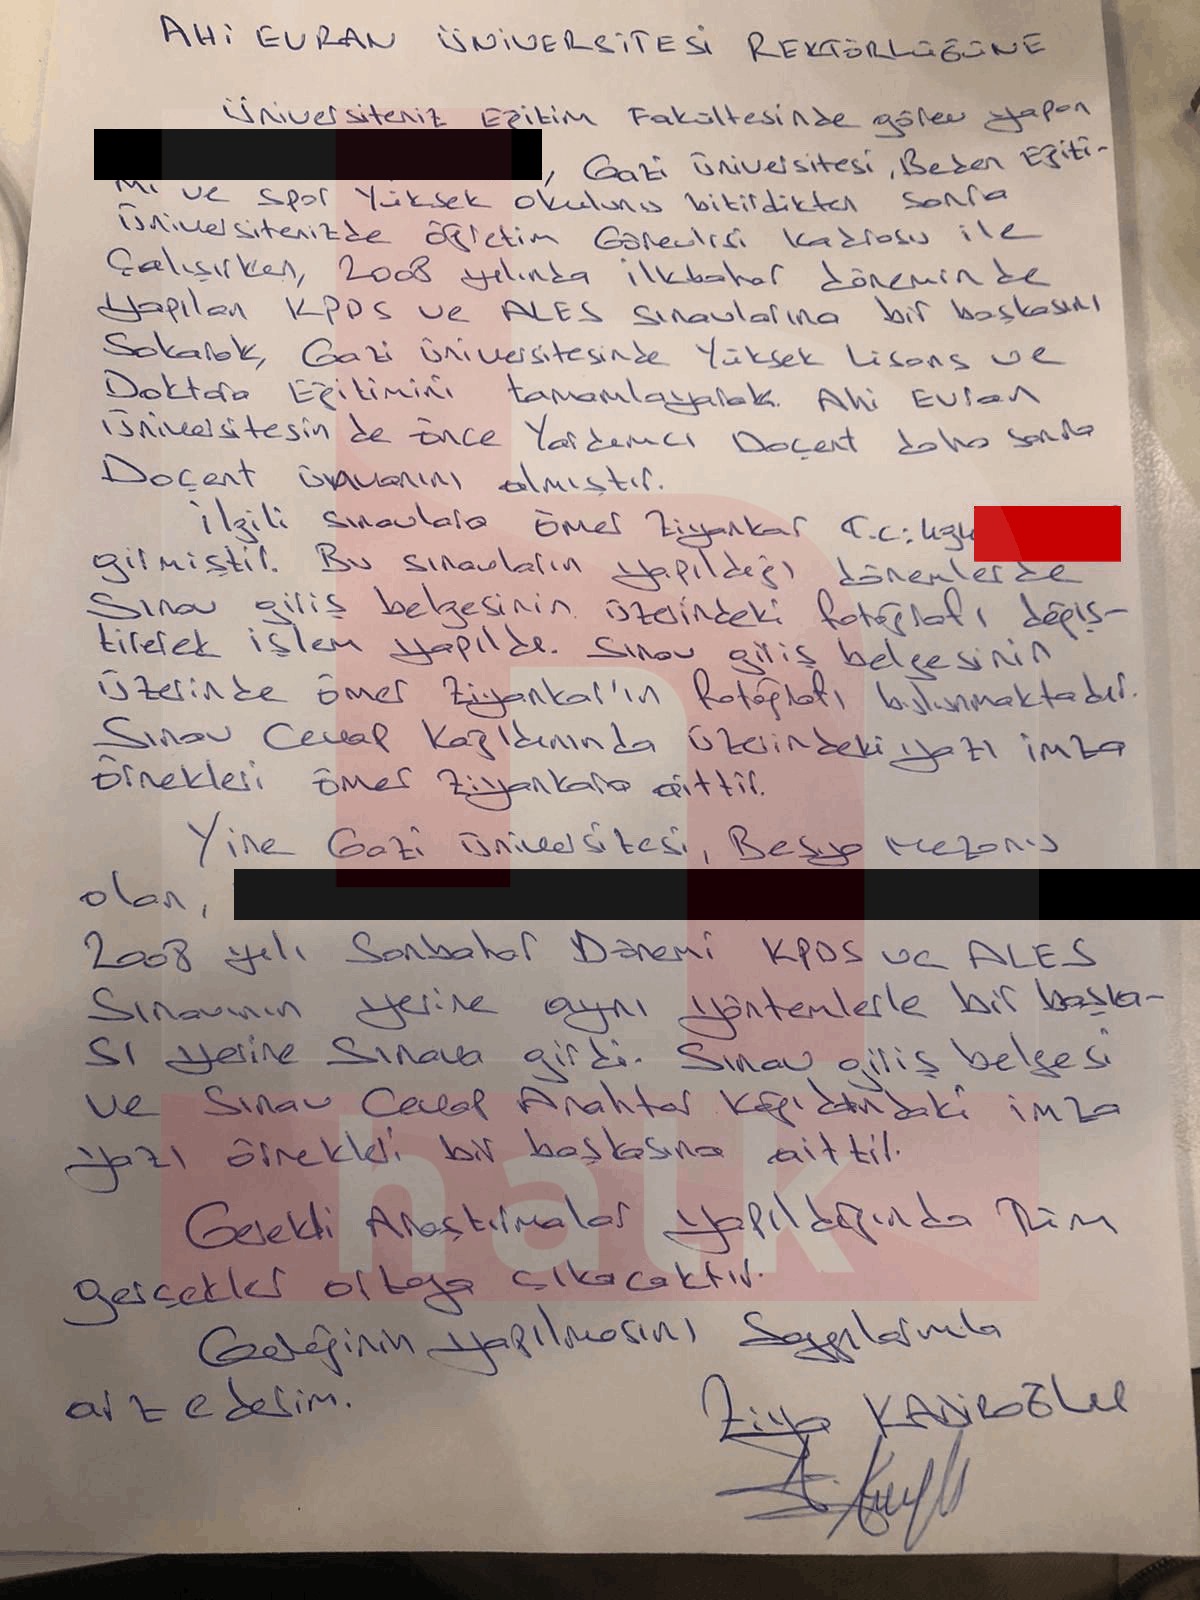 AHİ EVRAN ÜNİVERSİTESİ REKTÖRLÜĞÜNE
Üniversiteniz Eğitim Fakültesinde görev yapan
, Gazi Üniversitesi, Beden Eğiti-
mi ve Spor Yüksek Okulunu bitirdikten sonra
Üniversitenizde öğretim Görevlisi kadrosu ile
Çalışırken, 2008 yılında ilkbahar döneminde
yapılan KPDS ve ALES sınavlarına bir başkasını
Sokarak, Gazi Üniversitesinde Yüksek Lisans ve
Doktora Eğitimini tamamlayarak. Ahi Evran
Üniversitesin de önce Yardımcı Doçent daha sonra
Doçent ünvanını almıştır.
İlgili sınavlara Ömer Ziyankar T.C:
girmiştir. Bu sınavların yapıldığı dönemlerde
Sınav giriş belgesinin üzerindeki fotoğrafı değiş-
tirerek işlem yapıldı. Sınav giriş belgesinin
Üzerinde Ömer Ziyankar'ın fotoğrafı bulunmaktadır.
Sınav Cevap Kağıdınında Üzerindeki yazı imza
Örnekleri Ömer Ziyankara aittir.
Yine Gazi Üniversitesi, Besyo Mezunu
olan,
2008 yılı Sonbahar Dönemi KPDS ve ALES
Sınavının yerine aynı yöntemlerle bir başka-
sı yerine Sınava girdi. Sınav giriş belgesi
ve Sınav Cevap Anahtar Kağıdındaki imza
yazı örnekleri bir başkasına aittir.
Gerekli Araştırmalar yapıldığında Tüm
gerçekler ortaya çıkacaktır.
Gereğinin yapılmasını Saygılarımla
arz ederim.
Ziya KADİROĞLU
halk